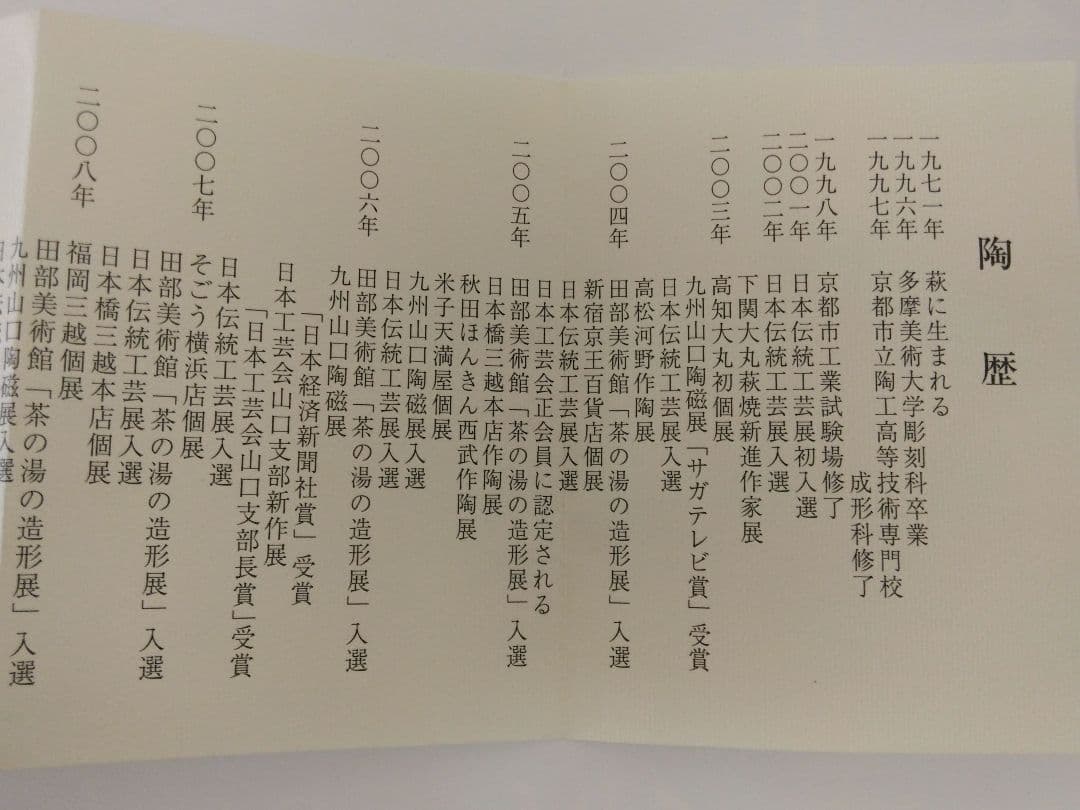 陶歴
一九七一年 萩に生まれる
一九九六年 多摩美術大学彫刻科卒業
一九九七年 京都市立陶工高等技術専門校
成形科修了
一九九八年 京都市工業試験場修了
二〇〇一年 日本伝統工芸展初入選
二〇〇二年 日本伝統工芸展入選
下関大丸萩焼新進作家展
二〇〇三年 高知大丸初個展
九州山口陶磁展「サガテレビ賞」受賞
日本伝統工芸展入選
高松河野作陶展
二〇〇四年 田部美術館「茶の湯の造形展」入選
新宿京王百貨店個展
日本伝統工芸展入選
日本工芸会正会員に認定される
二〇〇五年 田部美術館「茶の湯の造形展」入選
日本橋三越本店作陶展
秋田ほんきん西武作陶展
米子天満屋個展
九州山口陶磁展入選
日本伝統工芸展入選
二〇〇六年 田部美術館「茶の湯の造形展」入選
九州山口陶磁展
「日本経済新聞社賞」受賞
日本工芸会山口支部新作展
「日本工芸会山口支部長賞」受賞
日本伝統工芸展入選
そごう横浜店個展
二〇〇七年 田部美術館「茶の湯の造形展」入選
日本伝統工芸展入選
日本橋三越本店個展
福岡三越個展
二〇〇八年 田部美術館「茶の湯の造形展」入選
九州山口陶磁展入選